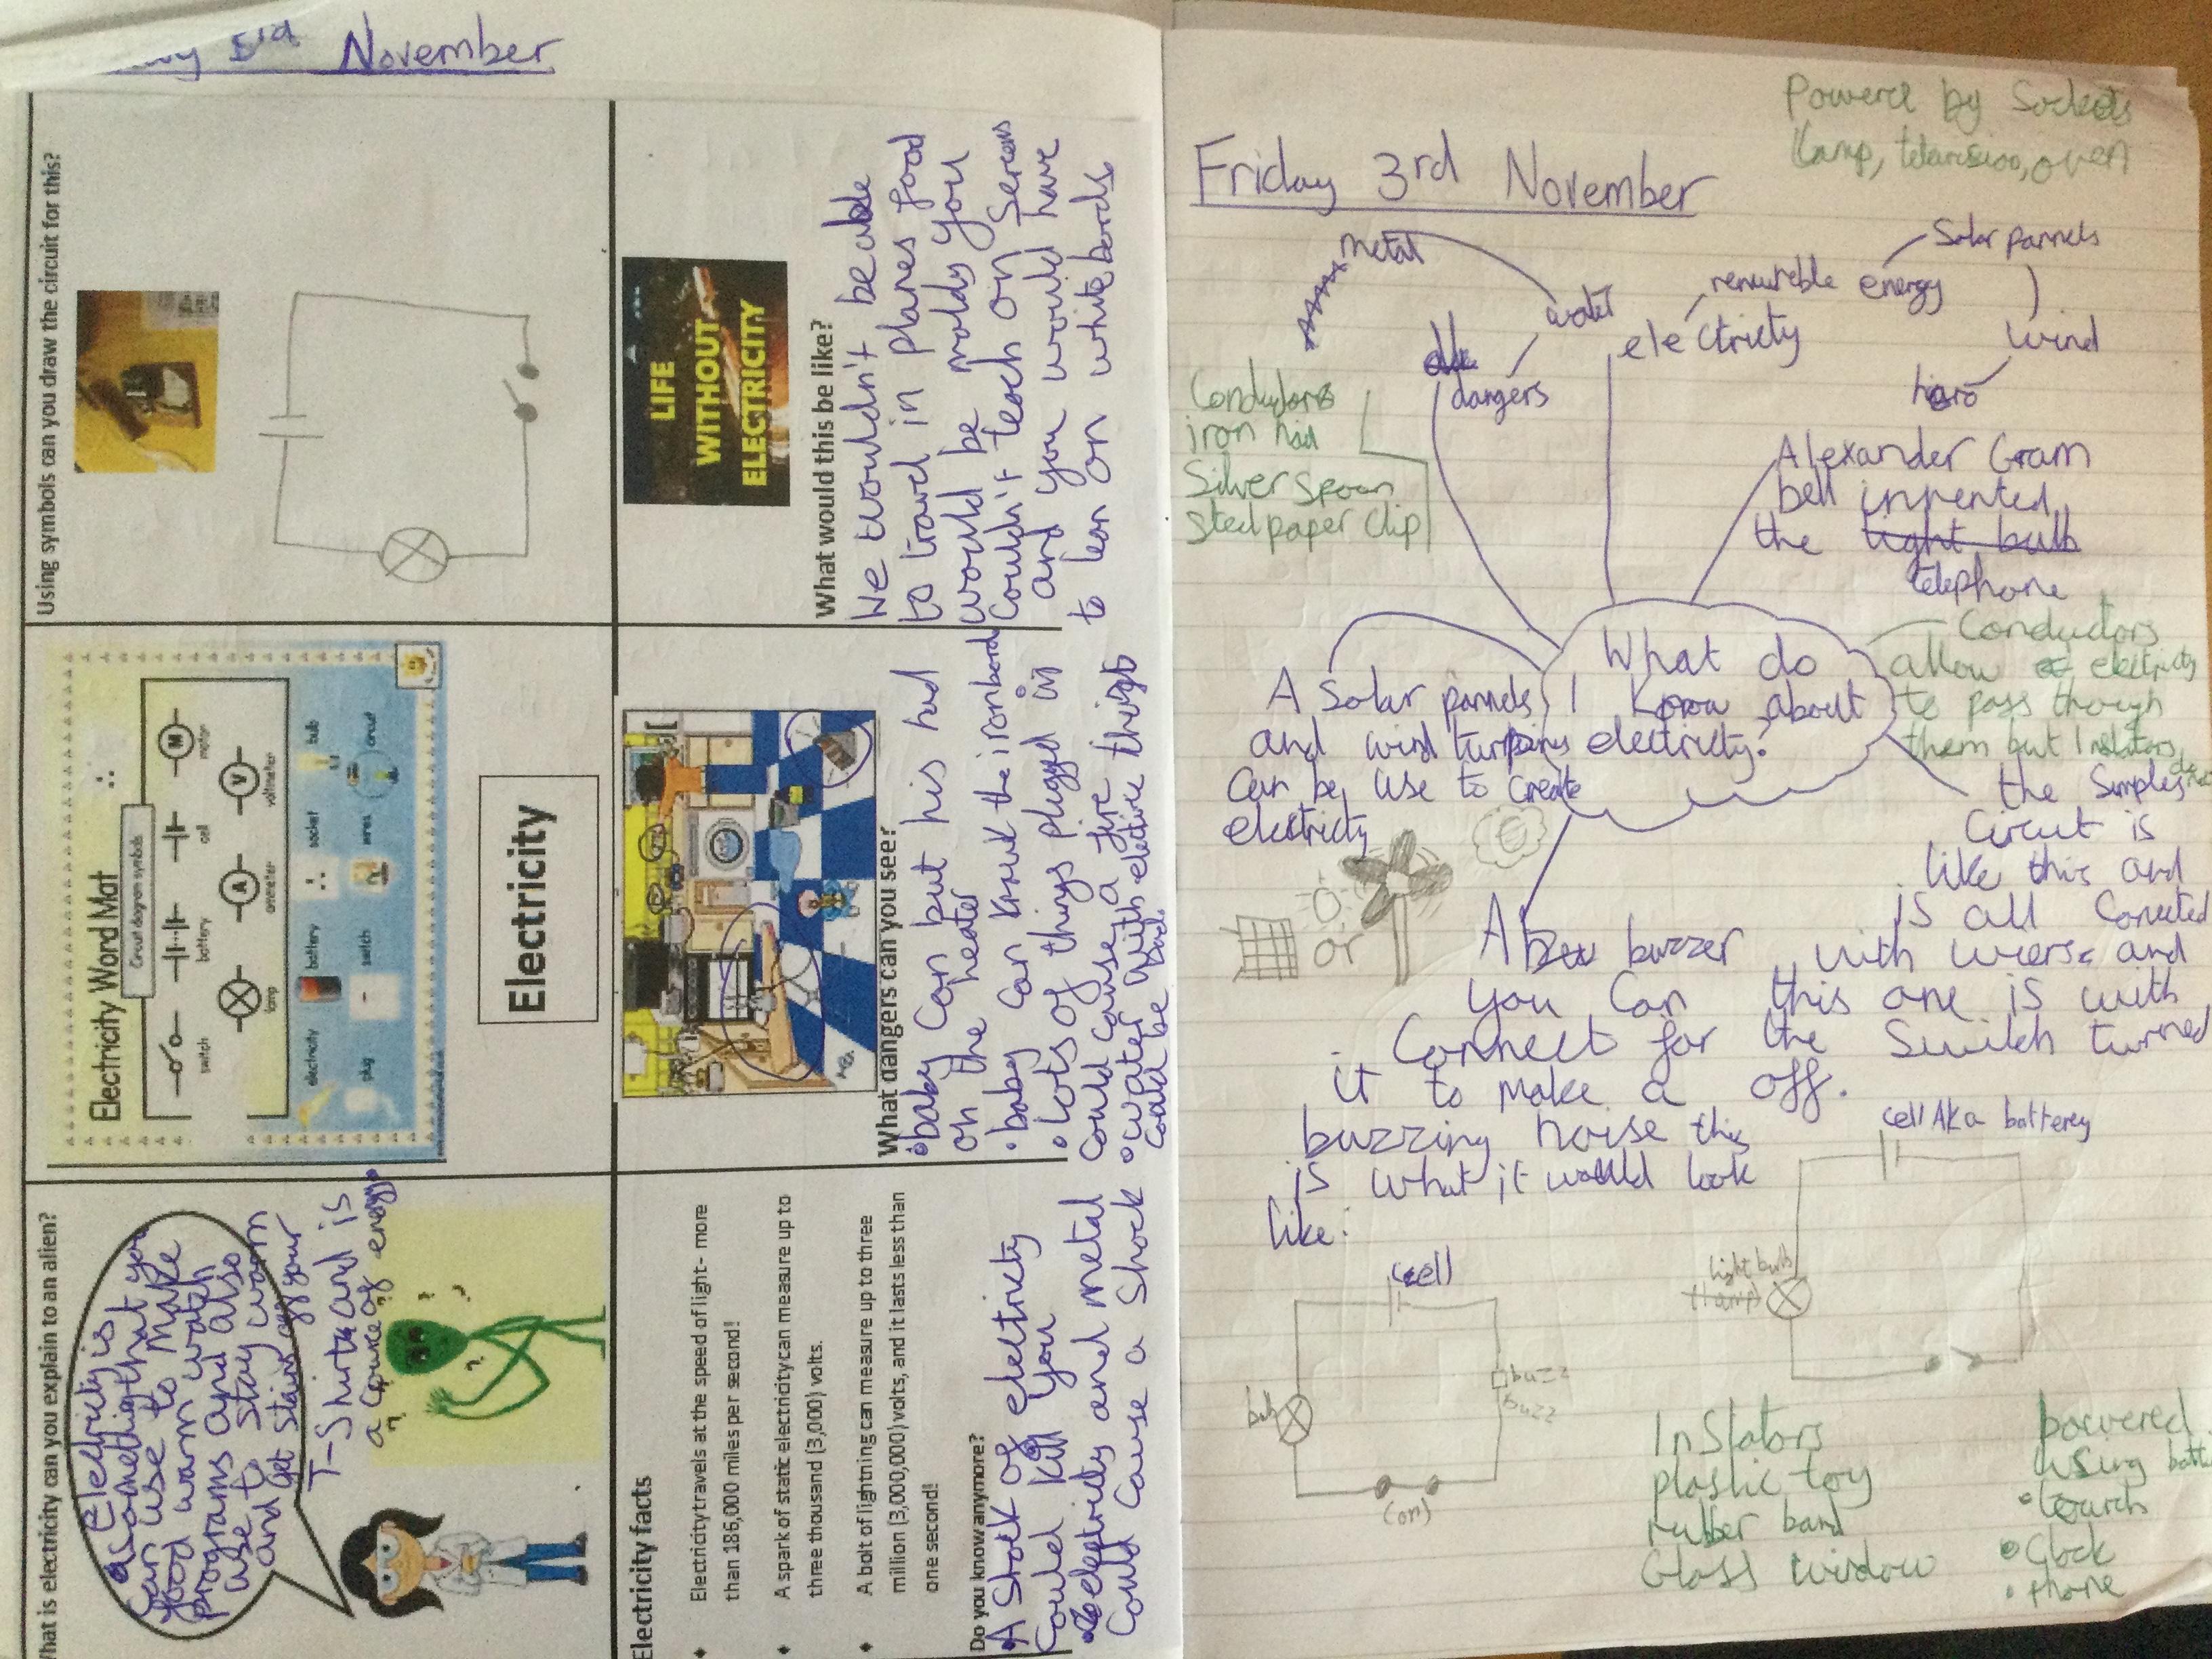 November
What is electricity can you explain to an alien?
Electricity is
a something that you
can use to make
food warm watch
programs and also
use to stay warm
and get stains off your
T-Shirts and is
a source of energy
Electricity Word Mat
Circuit diagram symbols
switch
battery
cell
motor
lamp
ammeter
voltmeter
electricity
battery
socket
bulb
plug
switch
wires
circuit
Electricity
Using symbols can you draw the circuit for this?
Electricity facts
Electricity travels at the speed of light- more
than 186,000 miles per second!
A spark of static electricity can measure up to
three thousand (3,000) volts.
A bolt of lightning can measure up to three
million (3,000,000) volts, and it lasts less than
one second!
Do you know anymore?
A Shock of electricity
Could kill you
electricity and metal
Could Cause a Shock
What dangers can you see?
• baby can but his had
on the heater
• baby can knok the ironbord
• Lots of things plugged in
Could cause a fire
• water with electric things
could be bad.
LIFE
WITHOUT
ELECTRICITY
What would this be like?
We wouldn't be able
to travel in planes food
would be moldy you
Couldn't teach on Screens
and you would have
to lean on white bords
Friday 3rd November
Powerd by Sockets
lamp, television, oven
metal
water
dangers
electricty
renewtble energy
Solar pannels
wind
Conductors
iron nail
Silver spoon
steel paper clip
Alexander Gram
bell invented
the light bulb
telephone
What do
I Know about
electricty?
Conductors
allow electricty
to pass though
them but Inslators
A Solar pannels
and wind turpins
Can be use to create
electricty
or
the Simples
Circut is
like this and
is all Conected
with wiers and
this one is with
the Switch turned
off.
A buzzer
you can
Connect for
it to make a
buzzing noise this
is what it would look
like:
cell
bulb
buzz
buzz
(on)
cell AKa batterey
light bulb
(lamp)
Inslators
plastic toy
rubber band
Glass window
powered
using
• tourch
• Clock
• phone